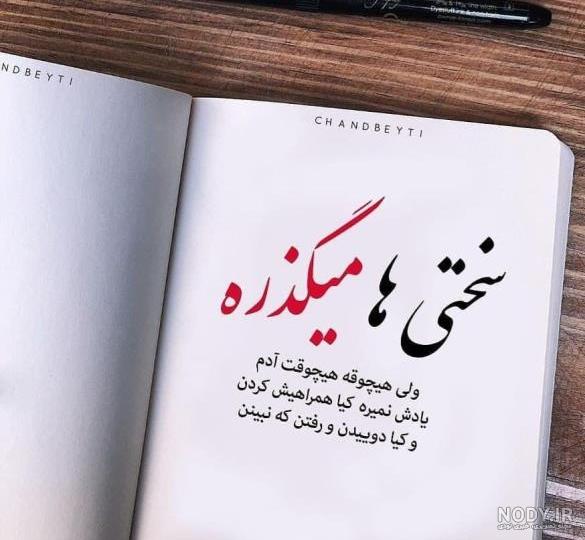 NDBEYTI
CHANDBEYTI
سختی ها میگذره
ولی هیچوقه هیچوقت آدم
یادش نمیره کیا همراهیش کردن
و کیا دوییدن و رفتن که نبینن
NODY.IR